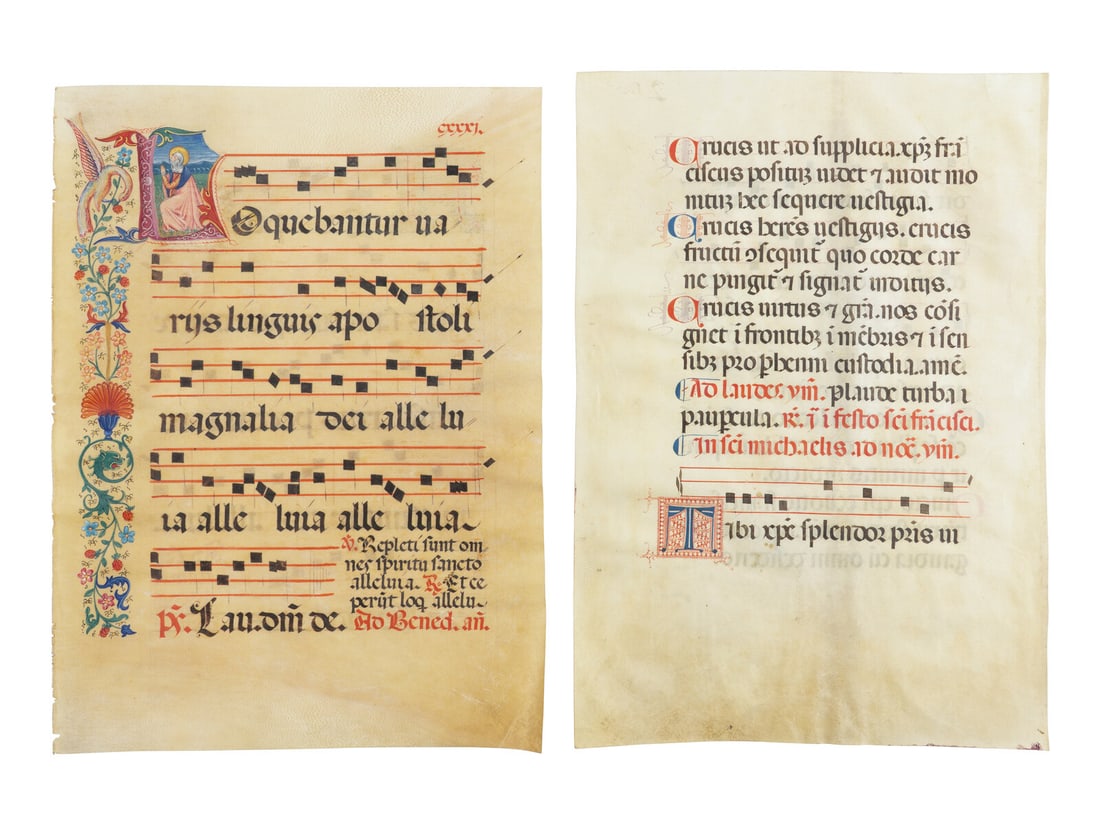 cxxxi.
Loquebantur ua
rijs linguis apo stoli
magnalia dei alle lu
ia alle luia alle luia
℣. Repleti sunt om
nes spiritu sancto
alleluia. ℟. Et ce
perūt loq̄ allelu
p̄s. Lau. dnm̄ de. Ad Bened. an̄.
Crucis ut ad supplicia. xp̄ꝫ frā
ciscus positꝫ uidet ⁊ audit mo
nitꝫ hec sequere uestigia.
Crucis herēs uestigijs. crucis
fructū ꝯsequit̄ quo corde car
ne pingit̄ ⁊ signat̄ inditijs.
Crucis uirtus ⁊ grā. nos cōsi
gnet ī frontibꝫ ī mēbris ⁊ ī sen
sibꝫ pro phenni custodia. amē.
Ad laudes. ym̄. plaude turba
paupcula. R̄. ī festo sci francisci.
In sci michaelis ad noc̄. ym̄.
Tibi xp̄e splendor pr̄is